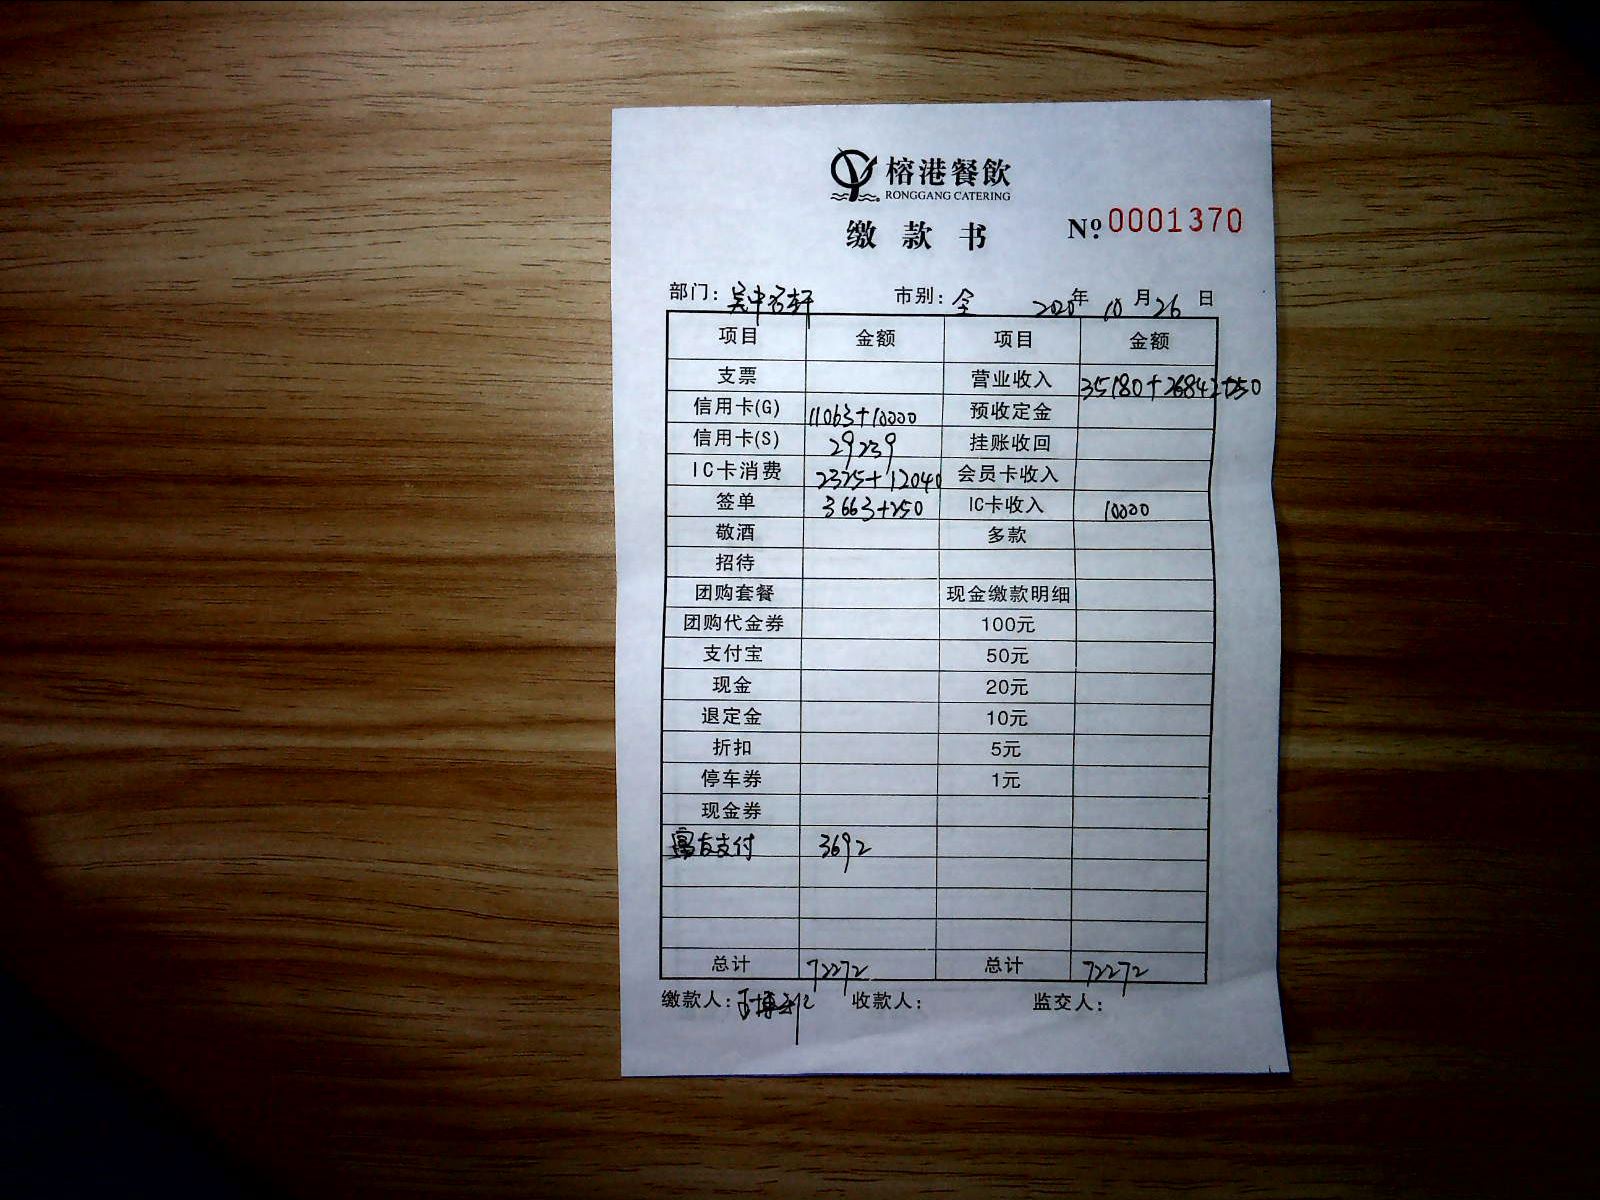 榕港餐飲
RONGGANG CATERING
缴款书 Nº 0001370
部门：吴中名轩 市别：全 2020年10月26日
项目 金额 项目 金额
支票 营业收入 35180+26842+250
信用卡(G) 11063+10000 预收定金
信用卡(S) 29239 挂账收回
IC卡消费 2325+12040 会员卡收入
签单 3663+250 IC卡收入 10000
敬酒 多款
招待
团购套餐 现金缴款明细
团购代金券 100元
支付宝 50元
现金 20元
退定金 10元
折扣 5元
停车券 1元
现金券
富友支付 3692
总计 72272 总计 72272
缴款人： 收款人： 监交人：